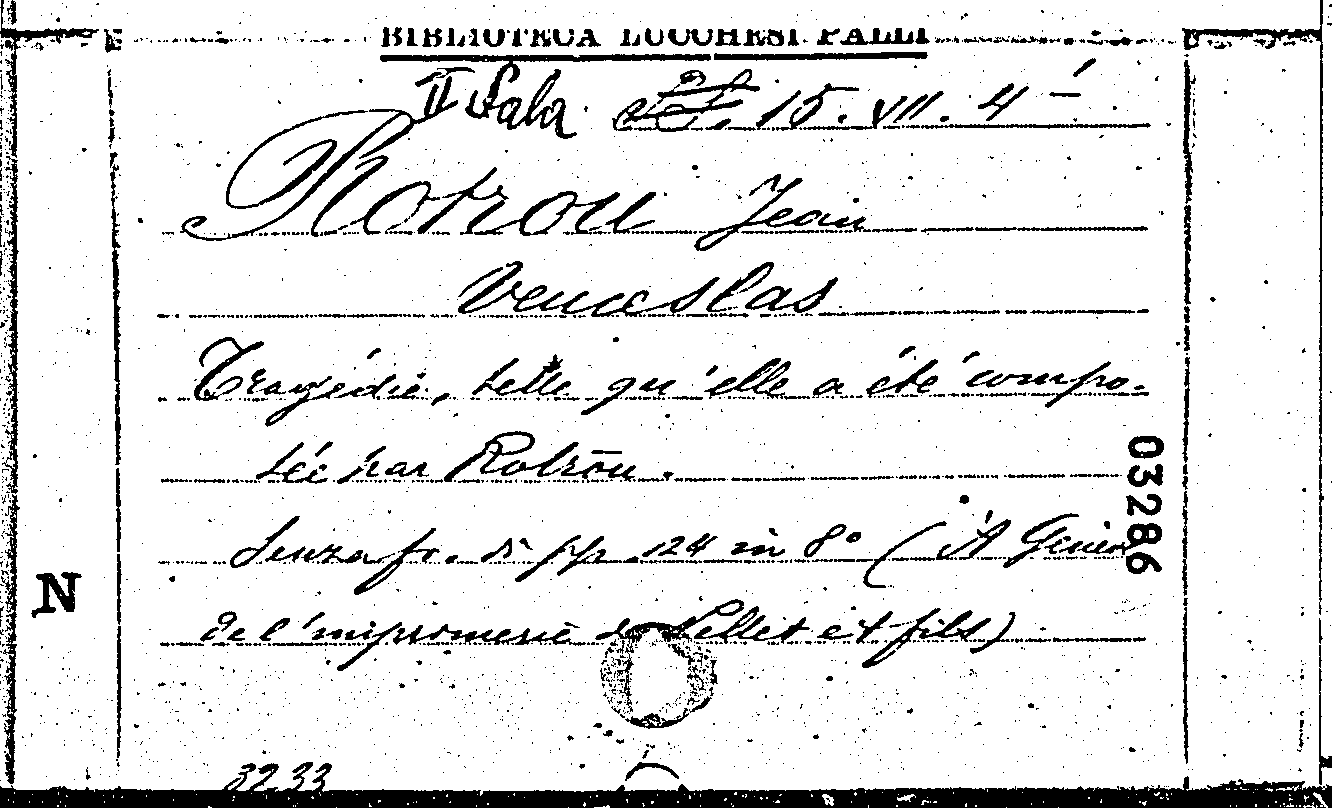 BIBLIOTECA LUCCHESI PALLI
II Sala 15. VII. 4 –
Rotrou Jean
Venceslas
Tragédie, telle qu'elle a été compo-
sée par Rotrou.
Senza fr. di pp. 124 in 8° (A Genève
de l'imiprimerie de Pellet et fils)
03286
N
3233